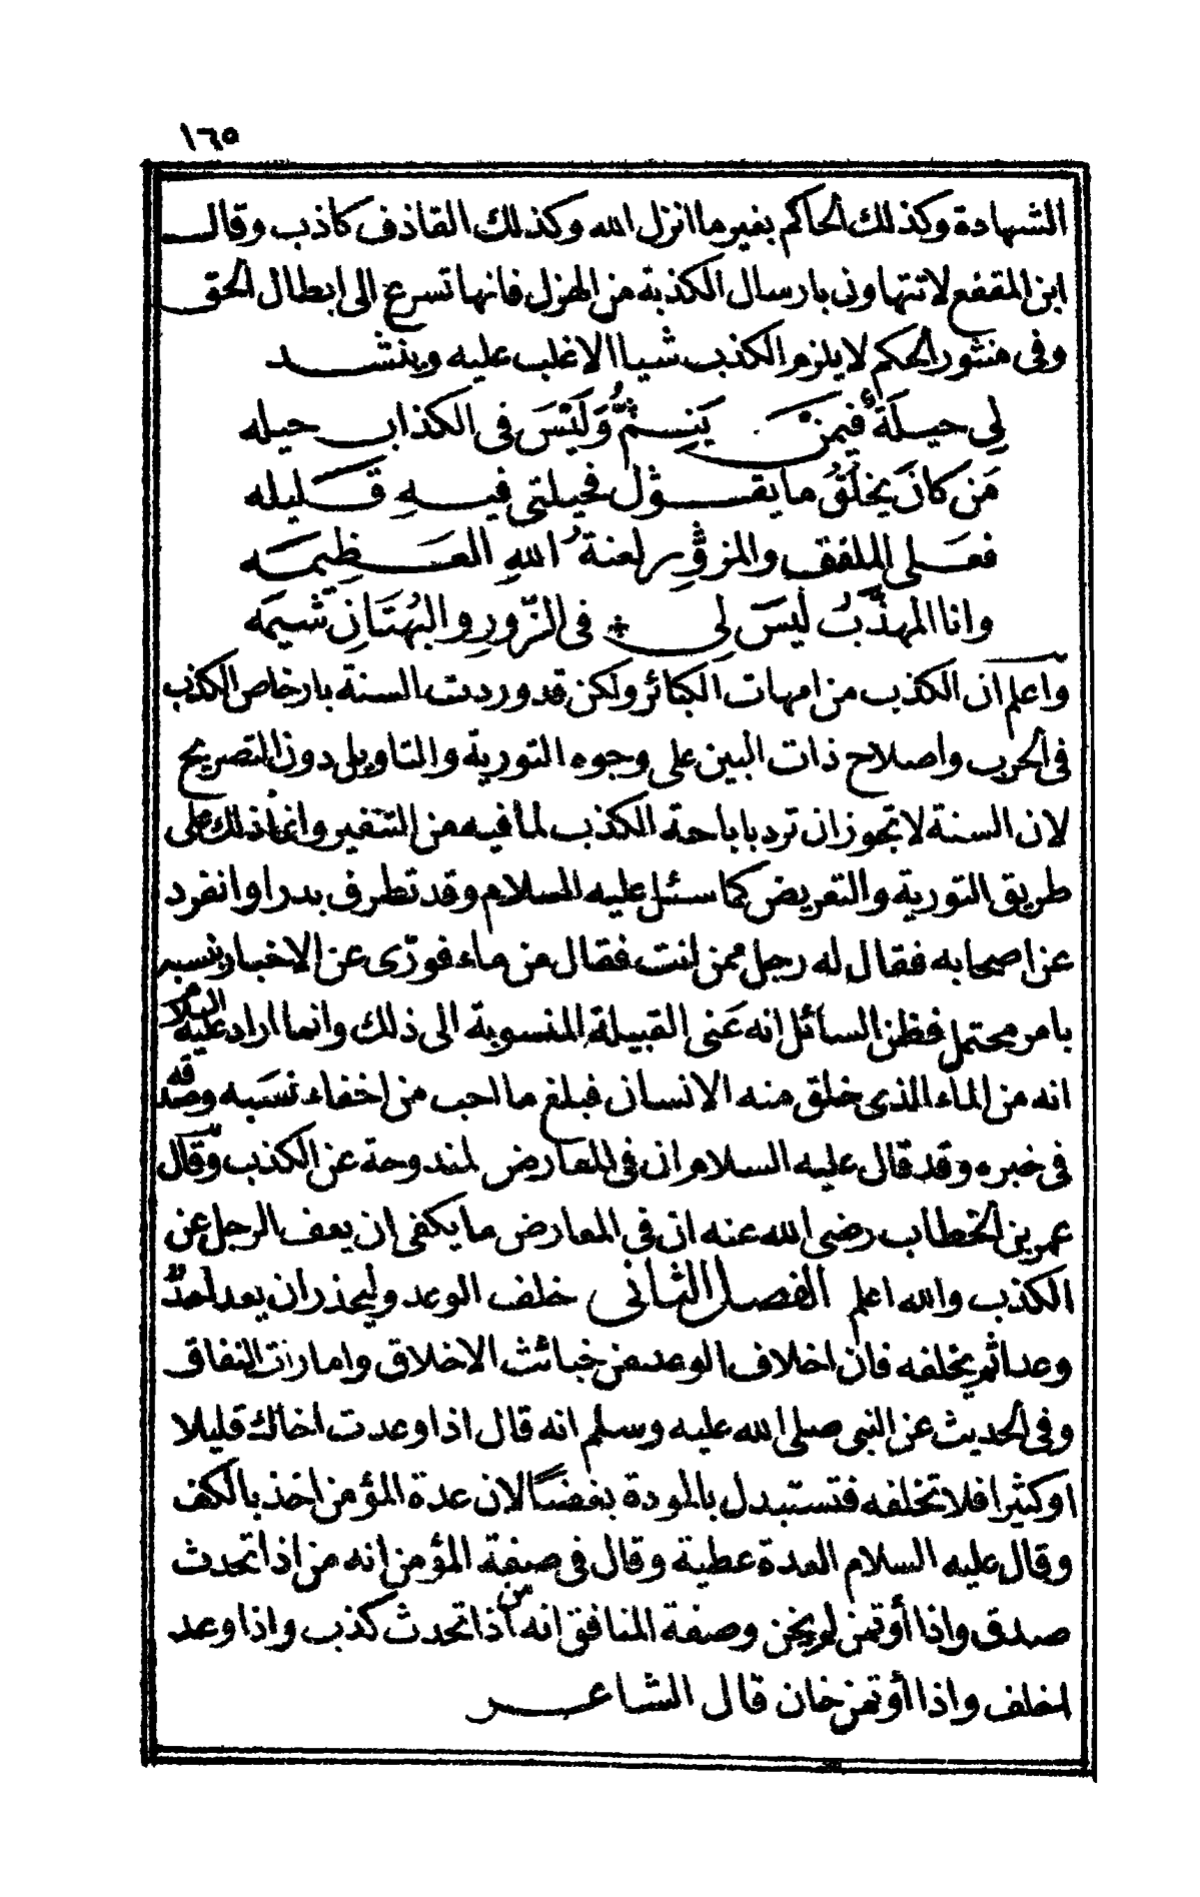 ١٦٥
الشهادة وكذلك الحاكم بغير ما انزل الله وكذلك القاذف كاذب وقال
ابن المقفع لا تتهاونى بارسال الكذبة من الهزل فانها تسرع الى ابطال الحق
وفى منثور الحكم لا يلزم الكذب شيا الا غلب عليه وينشد
لِى حيلَة فيمَنْ يَنِمُّ وَلَيْسَ فى الكذاب حيله
مَن كانَ يخلقُ ما يقول فحيلتى فيهِ قَليله
فعَلى الملفق والمزوِّر لعنةُ اللهِ العَظِيمَه
وانا المهذَّبُ ليسَ لِى ÷ فى الزّورِ والبُهتَانِ شيمَه
واعلم ان الكذب من امهات الكبائر ولكن قد وردت السنة بارخاص الكذب
فى الحرب واصلاح ذات البين على وجوه التورية والتاويل دون التصريح
لان السنة لا تجوز ان ترد باباحة الكذب لما فيه من التنفير وانما ذلك على
طريق التورية والتعريض كما سئل عليه السلام وقد تطرف بدرا وانفرد
عن اصحابه فقال له رجل ممن انت فقال من ماء فورّى عن الاخبار بنسبه
بامر محتمل فظن السائل انه عَنى القبيلة المنسوبة الى ذلك وانما اراد عليه السلام
انه من الماء الذى خلق منه الانسان فبلغ ما احب من اخفاء نسَبه وصدقه
فى خبره وقد قال عليه السلام ان فى المعارض لمندوحة عن الكذب وقال
عمر بن الخطاب رضى الله عنه ان فى المعارض ما يكفى ان يعف الرجل عن
الكذب والله اعلم الفصل الثانى خلف الوعد وليحذر ان يعد احدٌ
وعدا ثم يخلفه فان اخلاف الوعد من خبائث الاخلاق وامارات النفاق
وفى الحديث عن النبى صلى الله عليه وسلم انه قال اذا وعدت اخاك قليلا
او كثيرا فلا تخلفه فتستبدل بالمودة بغضًا لان عدة المؤمن اخذ بالكف
وقال عليه السلام العدة عطية وقال فى صفة المؤمن انه من اذا تحدث
صدق واذا أوتمن لم يخن وصفة المنافق انه من اذا تحدث كذب واذا وعد
اخلف واذا أوتمن خان قال الشاعر